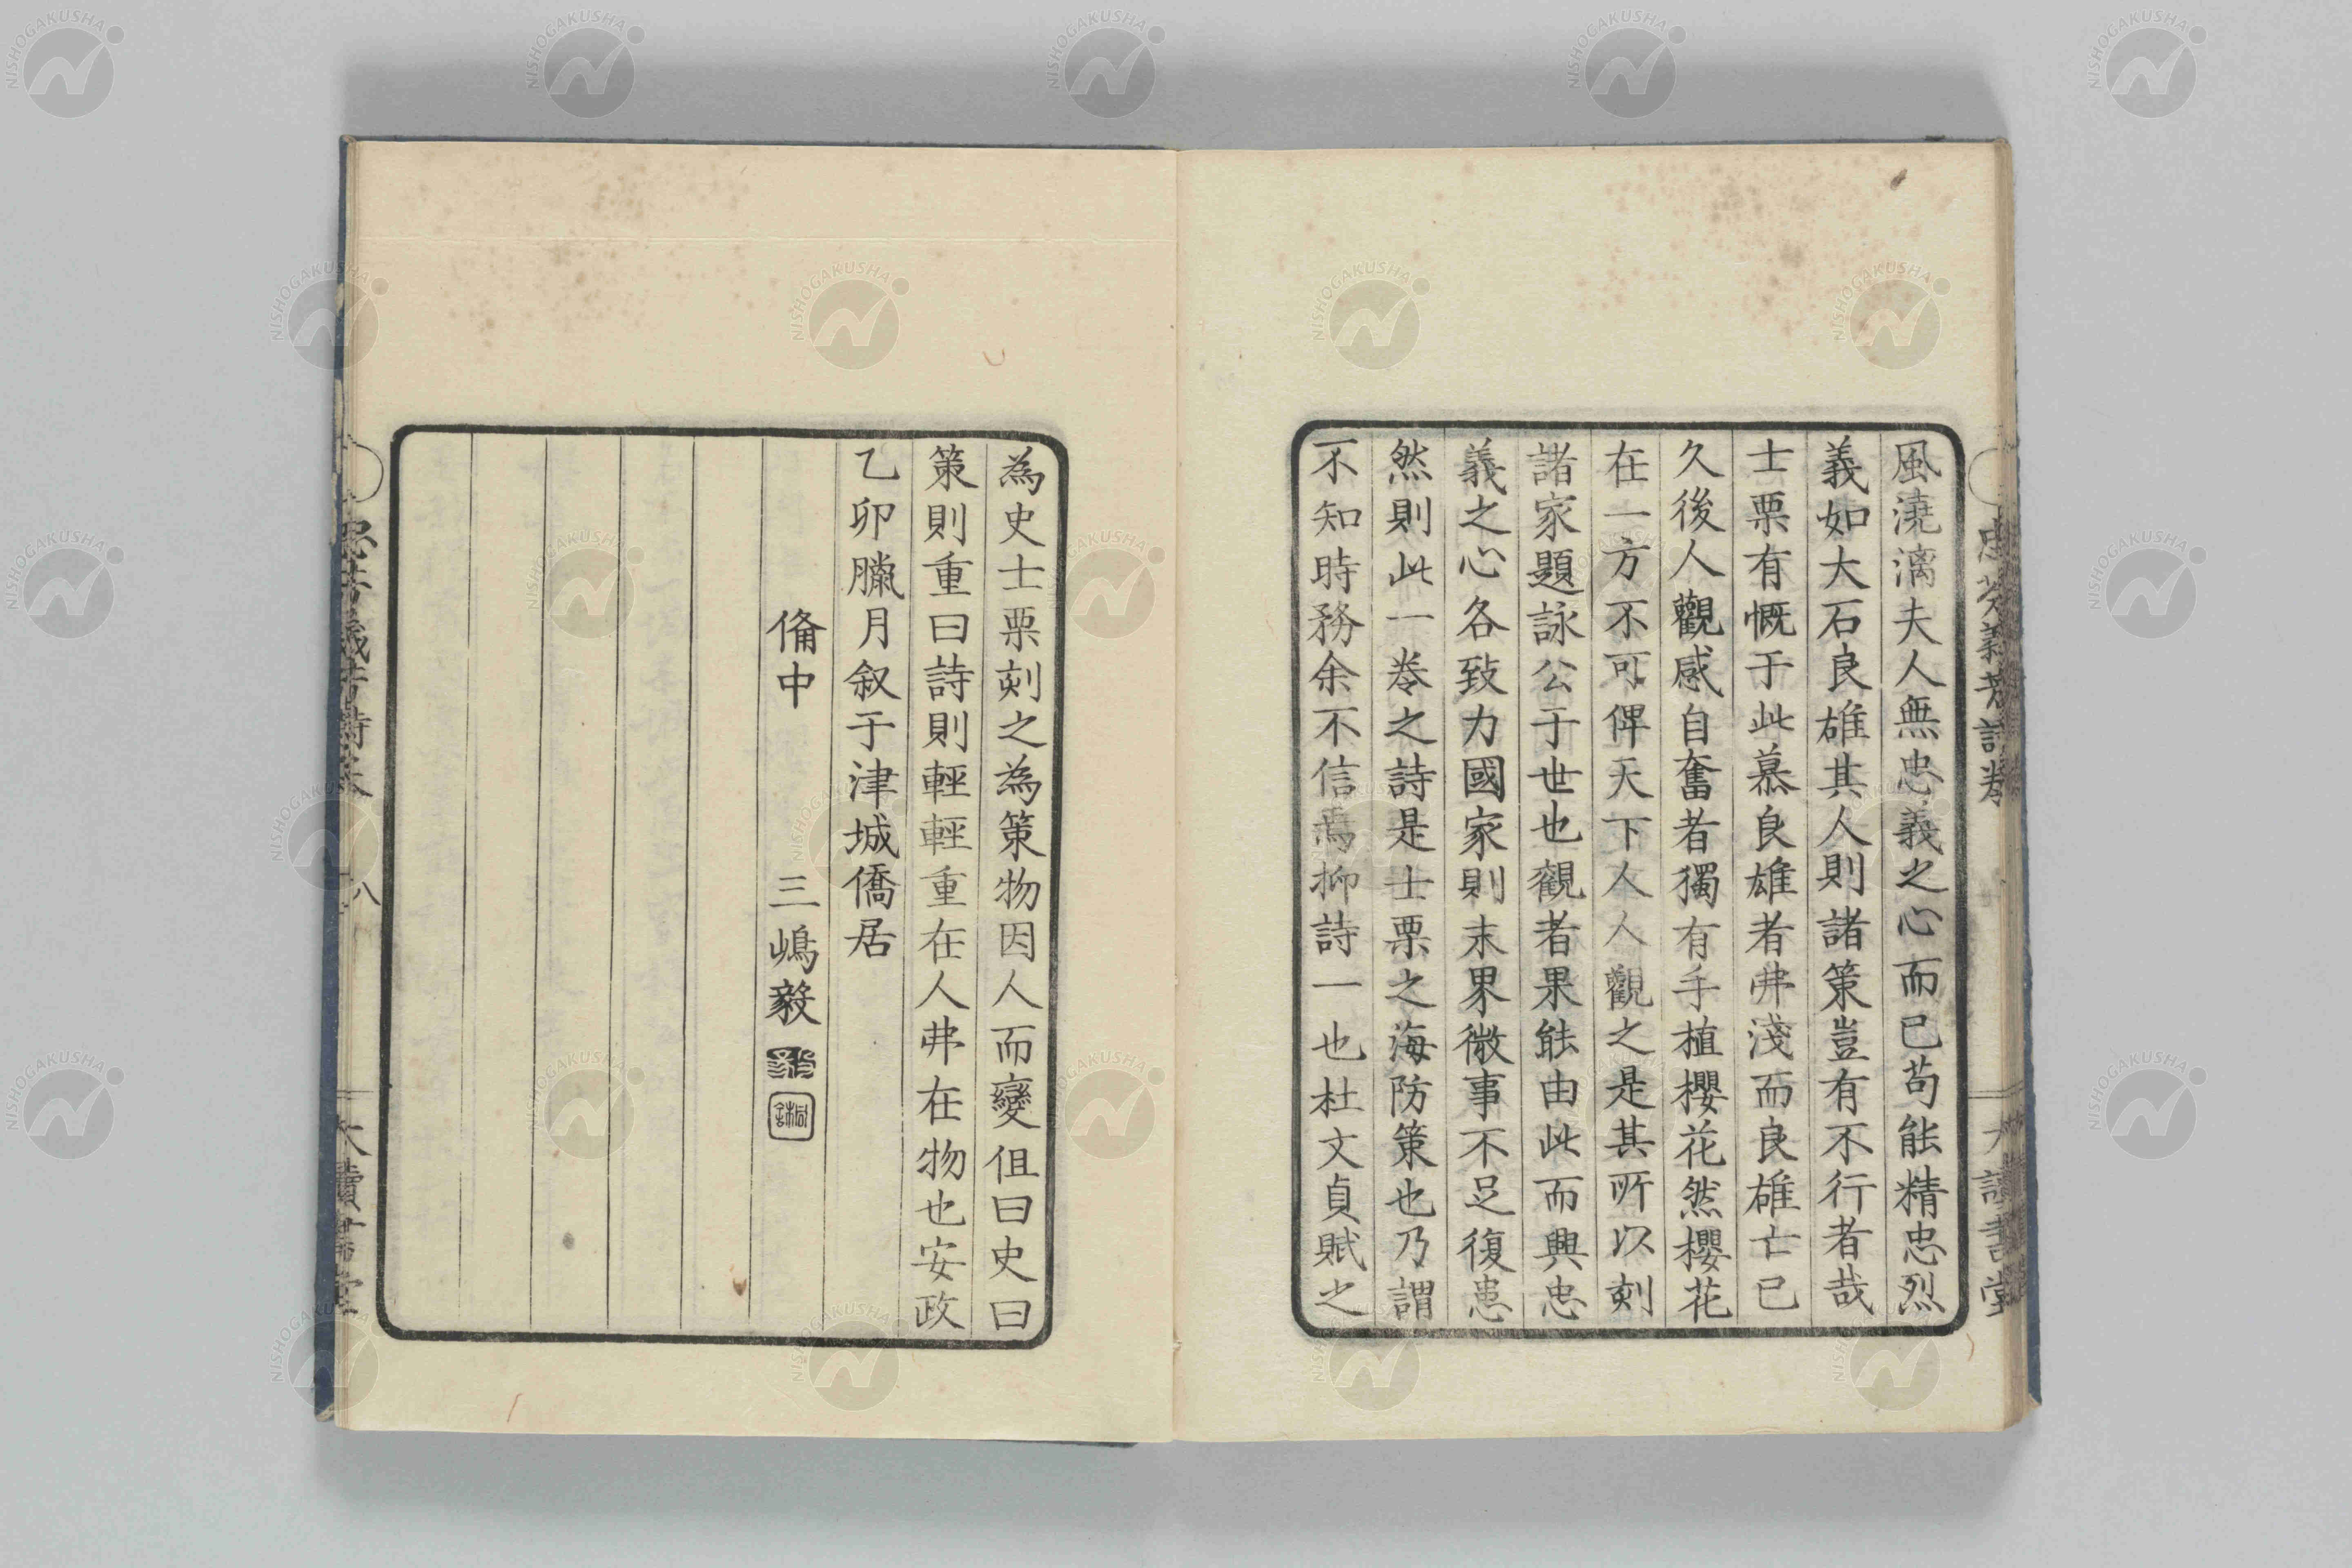 風澆漓夫人無忠義之心而已苟能精忠烈
義如大石良雄其人則諸策豈有不行者哉
士栗有慨于此慕良雄者弗淺而良雄亡已
久後人觀感自奮者獨有手植櫻花然櫻花
在一方不可俾天下人人觀之是其所以刻
諸家題詠公于世也觀者果能由此而興忠
義之心各致力國家則末界微事不足復患
然則此一卷之詩是士栗之海防策也乃謂
不知時務余不信焉抑詩一也杜文貞賦之
為史士栗刻之為策物因人而變但曰史曰
策則重曰詩則輕輕重在人弗在物也安政
乙卯臘月叙于津城僑居
備中　三嶋毅